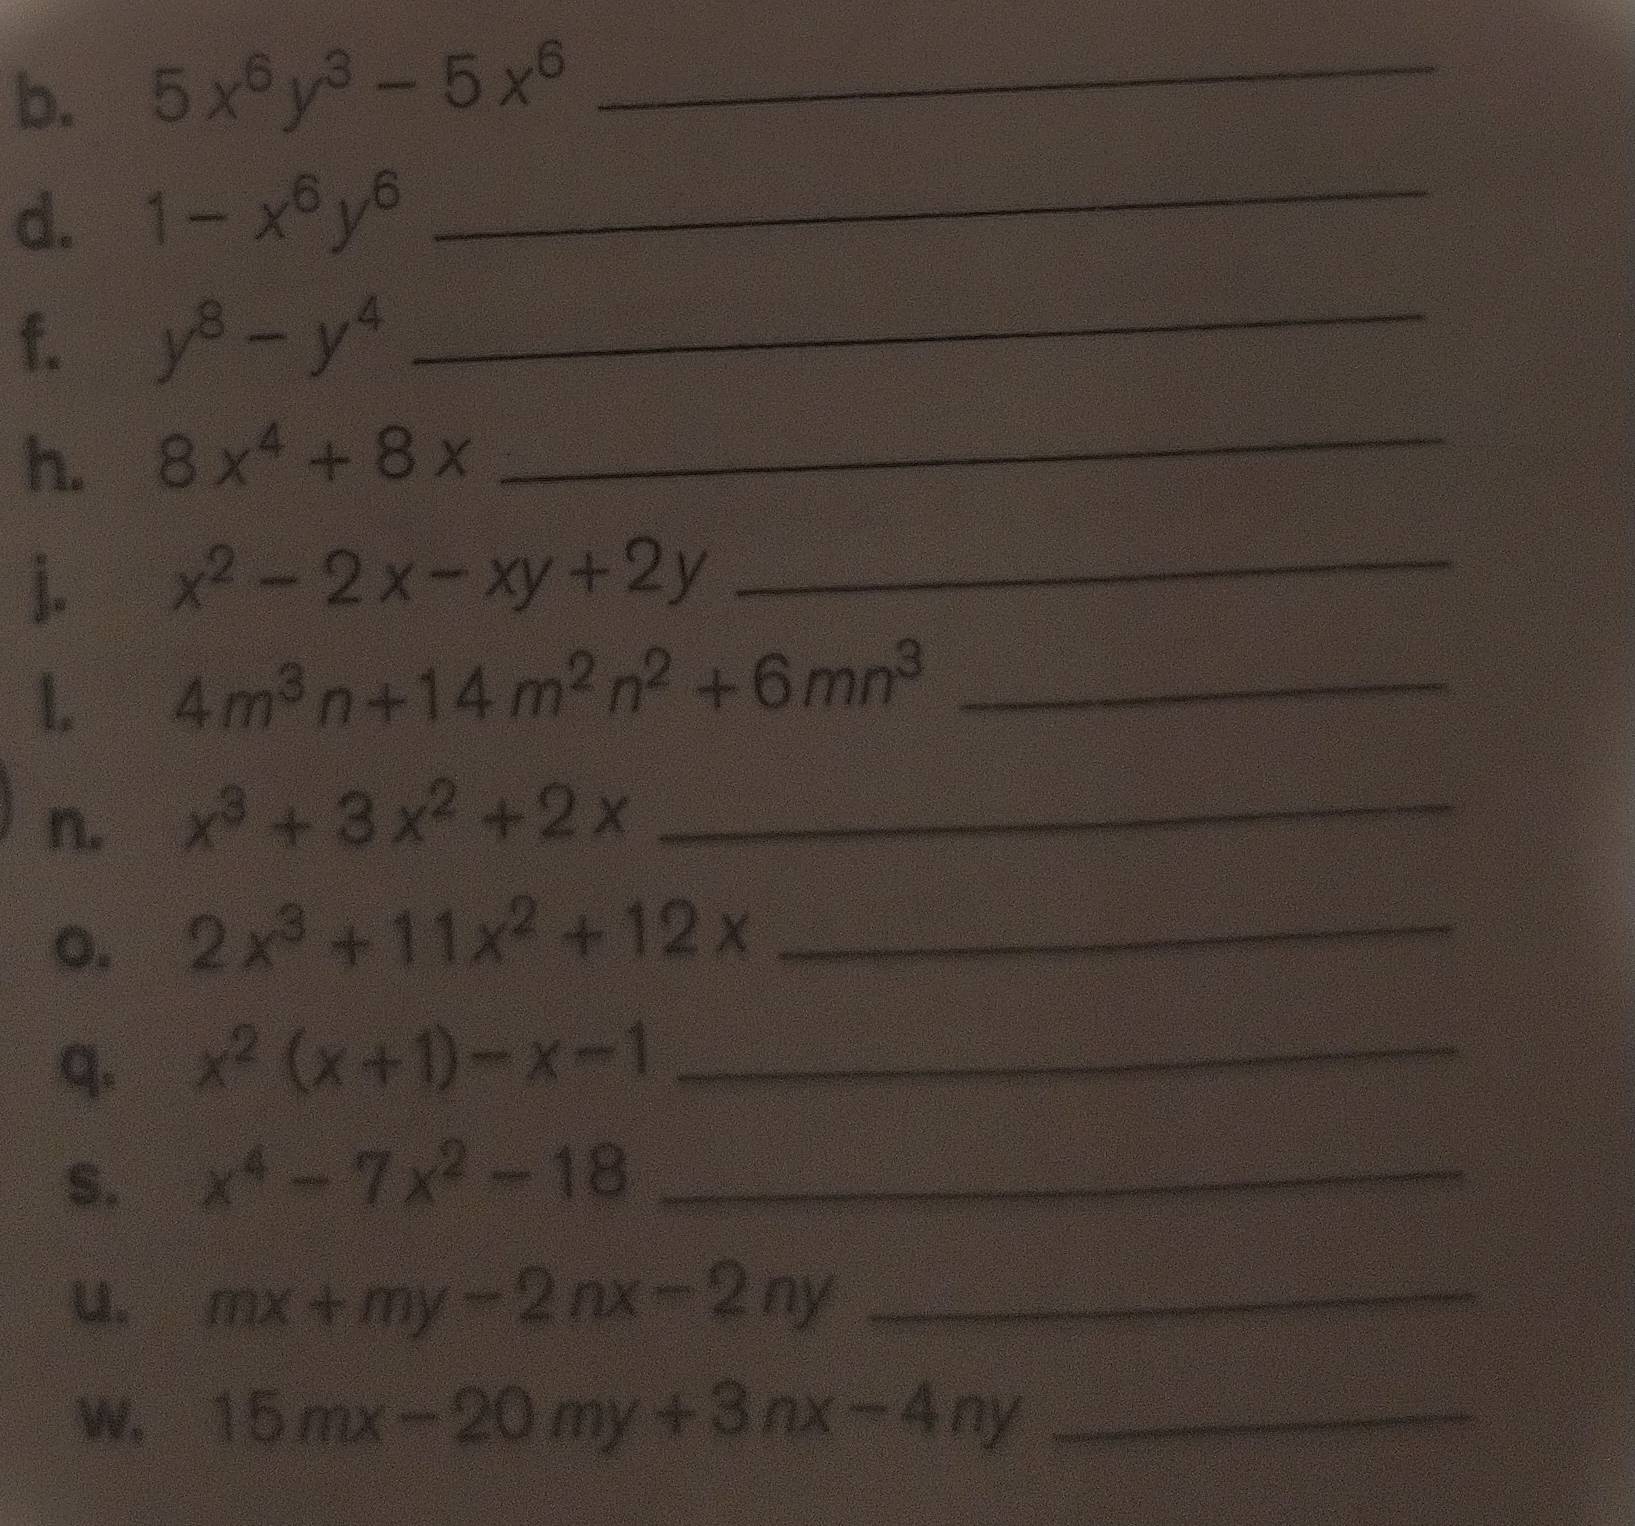 b. 5x⁶y³ - 5x⁶
d. 1 - x⁶y⁶
f. y⁸ - y⁴
h. 8x⁴ + 8x
j. x² - 2x - xy + 2y
l. 4m³n + 14m²n² + 6mn³
n. x³ + 3x² + 2x
o. 2x³ + 11x² + 12x
q. x²(x + 1) - x - 1
s. x⁴ - 7x² - 18
u. mx + my - 2nx - 2ny
w. 15mx - 20my + 3nx - 4ny